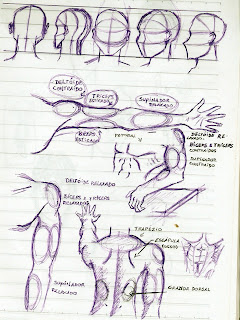 DELTOIDE
CONTRAIDO
TRICEPS
ESTICADO
SUPINADOR
RELAXADO
BICEPS
ESTICADO
PEITORAL
DELTOIDE RE-
LAXADO
BICEPS E TRÍCEPS
CONTRAIDOS
SUPINADOR
CONTRAIDO
DELTOIDE RELAXADO
BICEPS E TRÍCEPS
RELAXADOS
TRAPEZIO
ESCÁPULA
SUPINADOR
RELAXADO
GRANDE DORSAL